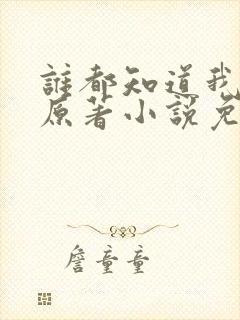 誰都知道我
原著小說免
詹童童